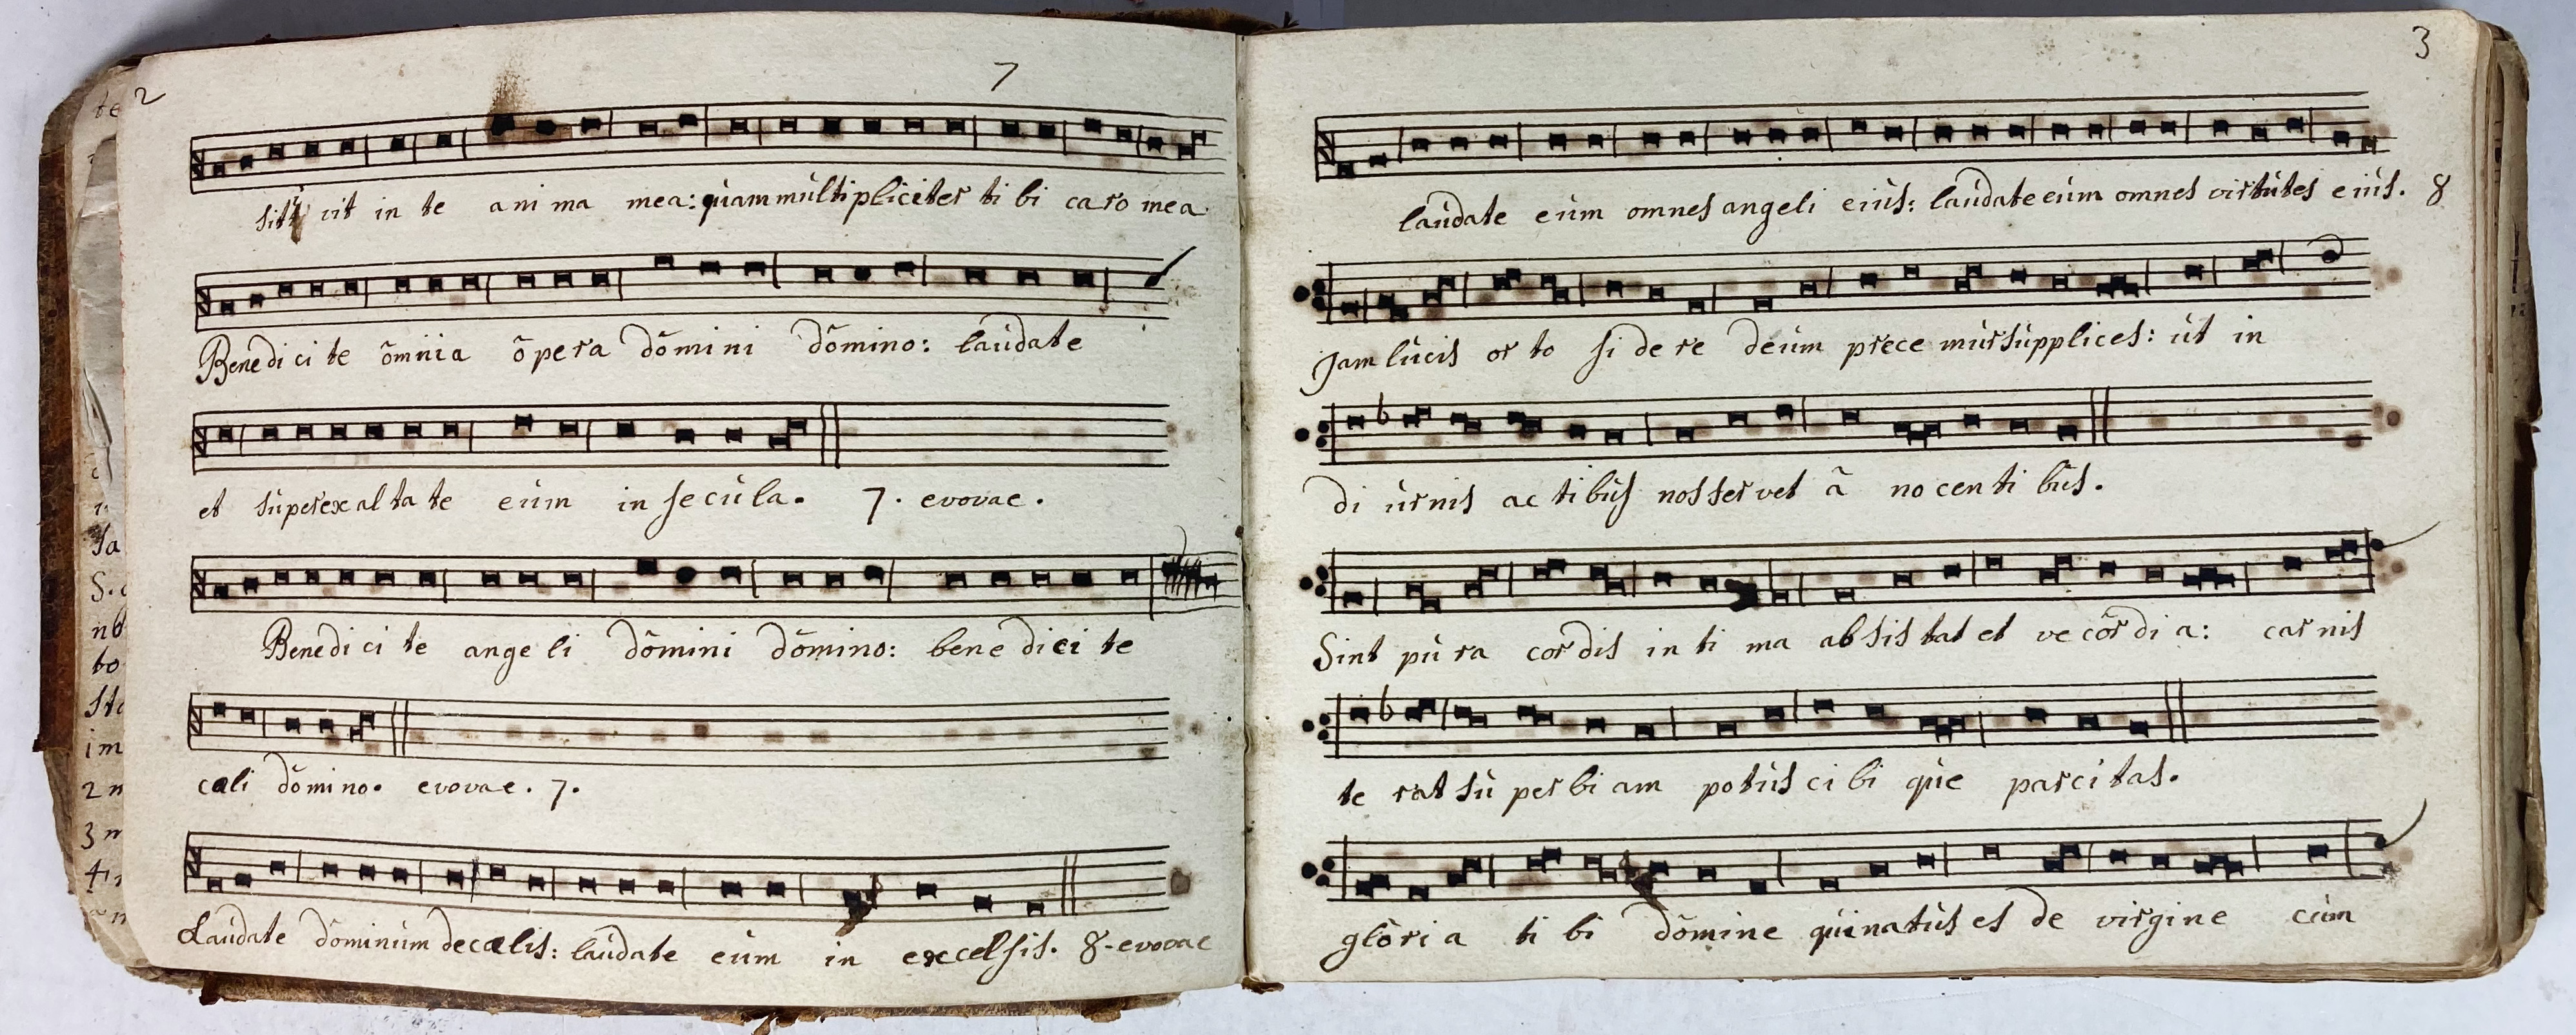 2
7
vit in te ani ma mea: quam múltipliciter ti bi caro mea
Benedi ci te õmnia õpera dõmini dõmino: laúdate
et súperexal ta te eúm in secúla. 7. evovae.
Benedi ci te ange li dõmini dõmino: bene dici te
cæli dõmino. evovae. 7.
Laúdate dõminúm de cælis: laúdate eúm in excelsis. 8-evovae
3
laúdate eúm omnes angeli eiús: laúdate eúm omnes virtútes eiús. 8
Jam lúcis or to si de re deúm prece múr súpplices: út in
di úrnis ac tibús nos ser vet ã no cen ti bús.
Sint pú ra cor dis in ti ma absis tat et ve cõr di a: car nis
te rat sú per bi am potús ci bi qúe parci tas.
glõri a ti bi dõmine qúi natús es de virgine cúm